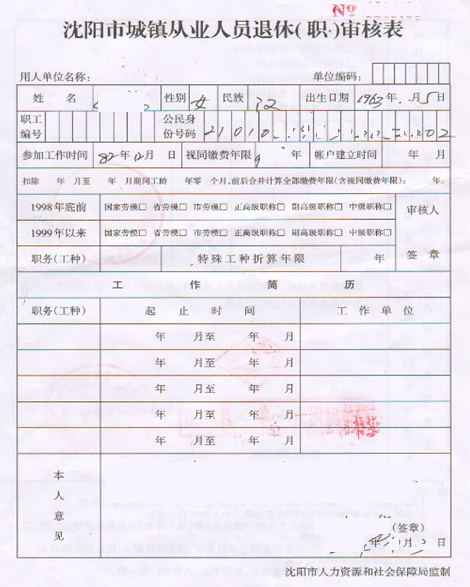 沈阳市城镇从业人员退休(职)审核表
No
用人单位名称: 单位编码:
姓名 性别 女 民族 汉 出生日期 1963年 月5日
职工编号 公民身份号码 21010 202
参加工作时间 82年12月 日 视同缴费年限 9 年 帐户建立时间 年 月
扣除 年 月至 年 月期间工龄 年零 个月,前后合并计算全部缴费年限(含视同缴费年限): 年。
1998年底前 国家劳模□ 省劳模□ 市劳模□ 正高级职称□ 副高级职称□ 中级职称□ 审核人
1999年以来 国家劳模□ 省劳模□ 市劳模□ 正高级职称□ 副高级职称□ 中级职称□
职务(工种) 特殊工种折算年限 年 签章
工作简历
职务(工种) 起止时间 工作单位
年 月至 年 月
年 月至 年 月
年 月至 年 月
年 月至 年 月
年 月至 年 月
本人意见
(签章)
年 月 日
沈阳市人力资源和社会保障局监制